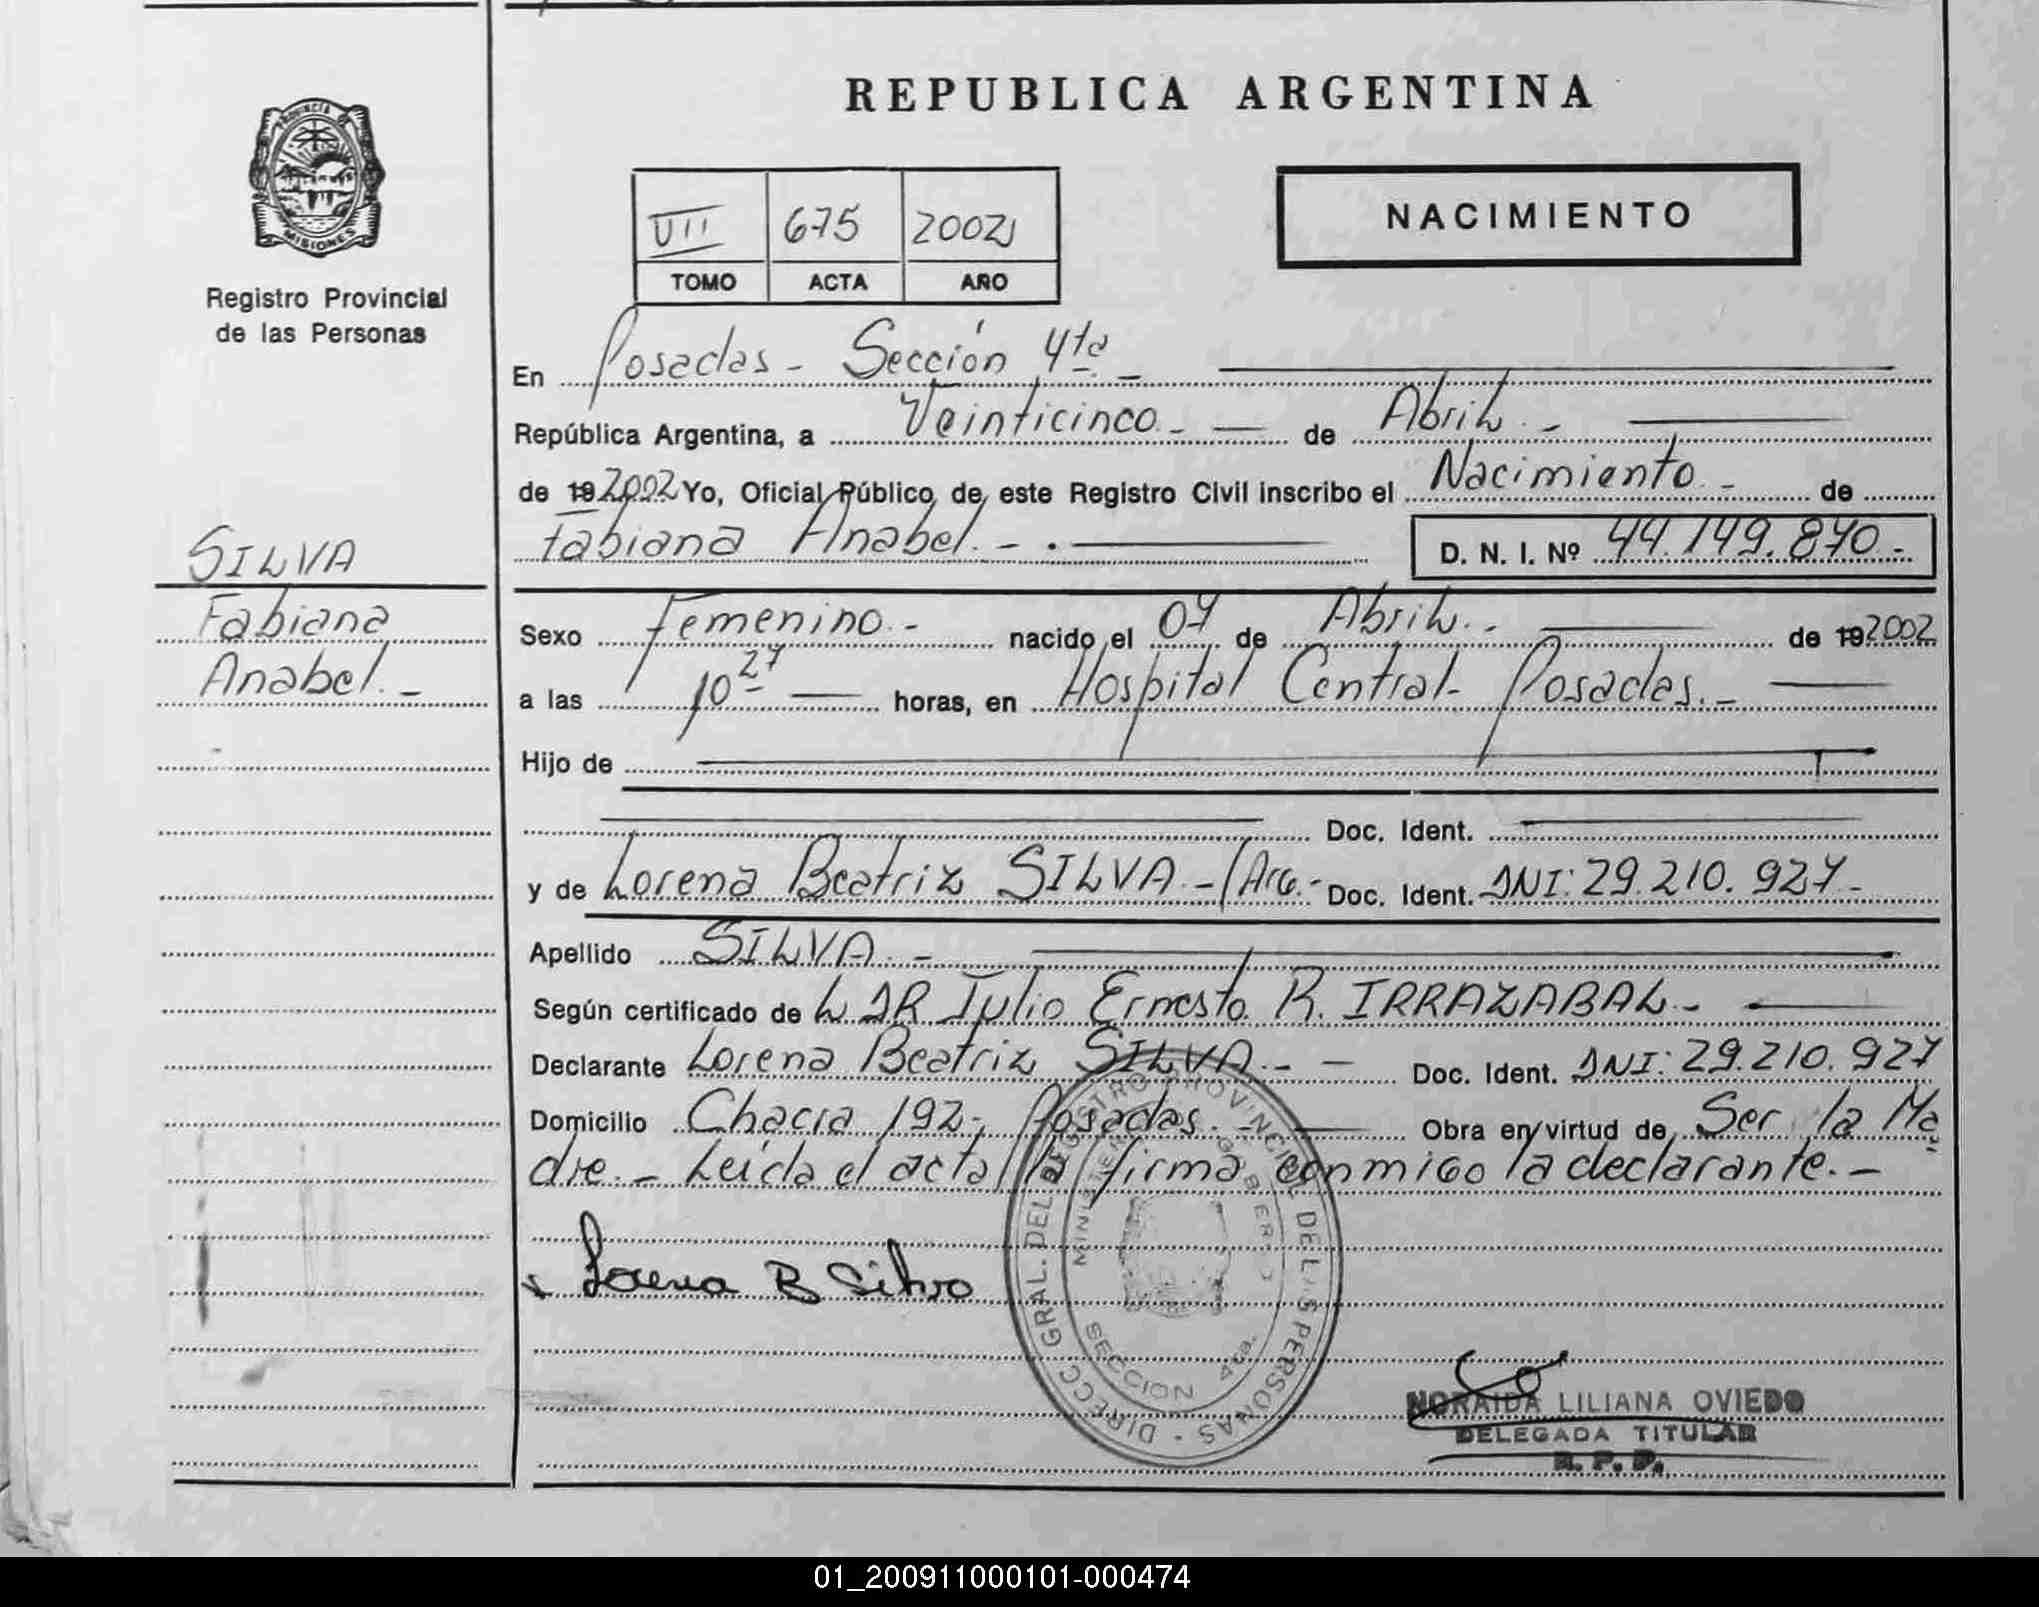 REPUBLICA ARGENTINA
PROVINCIA DE
MISIONES
Registro Provincial
de las Personas
VII 675 2002
TOMO ACTA AÑO
NACIMIENTO
En Posadas - Sección 4ta -
República Argentina, a Veinticinco - de Abril. -
de 19 2002 Yo, Oficial Público de este Registro Civil inscribo el Nacimiento - de
Fabiana Anabel. - . D. N. I. Nº 44.149.870 -
SILVA
Fabiana
Anabel. -
Sexo Femenino - nacido el 07 de Abril. - de 19 2002
a las 10 27 horas, en Hospital Central - Posadas. -
Hijo de
Doc. Ident.
y de Lorena Beatriz SILVA - (Arg. - Doc. Ident. DNI: 29.210.927 -
Apellido SILVA. -
Según certificado de L DR Julio Ernesto R. IRRAZABAL -
Declarante Lorena Beatriz SILVA. - - Doc. Ident. DNI: 29.210.927
Domicilio Chacra 192, Posadas. - Obra en virtud de Ser la Ma
dre. - Leída el acta la firma conmigo la declarante. -
Lorena B Silva
DIRECC GRAL. DEL REGISTRO PROVINCIAL DE LAS PERSONAS -
MINISTERIO DE GOBIERNO
SECCION 4ta.
NORAIDA LILIANA OVIEDO
DELEGADA TITULAR
R. P. P.
01_200911000101-000474